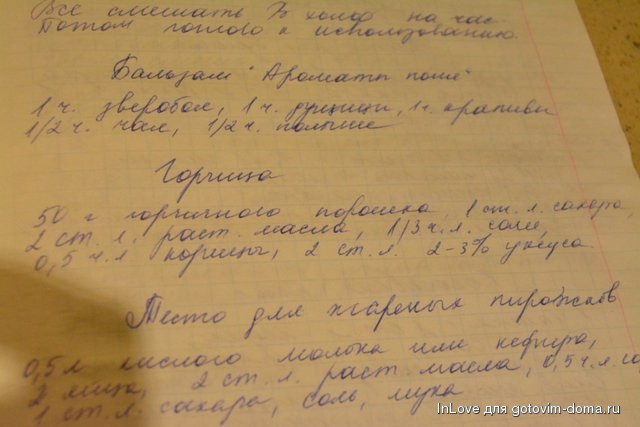 Все смешать. В холод на час.
Потом готово к использованию.
Бальзам "Ароматы поля"
1 ч. зверобоя, 1 ч. душицы, 1 ч. крапивы
1/2 ч. чая, 1/2 ч. полыни
Горчица
50 г горчичного порошка, 1 ст. л. сахара,
2 ст. л. раст. масла, 1/3 ч. л. соли,
0,5 ч. л корицы, 2 ст. л. 2-3% уксуса.
Тесто для жареных пирожков
0,5 л кислого молока или кефира,
2 яйца, 2 ст. л. раст. масла, 0,5 ч. л.
1 ст. л. сахара, соль, мука
InLove для gotovim-doma.ru